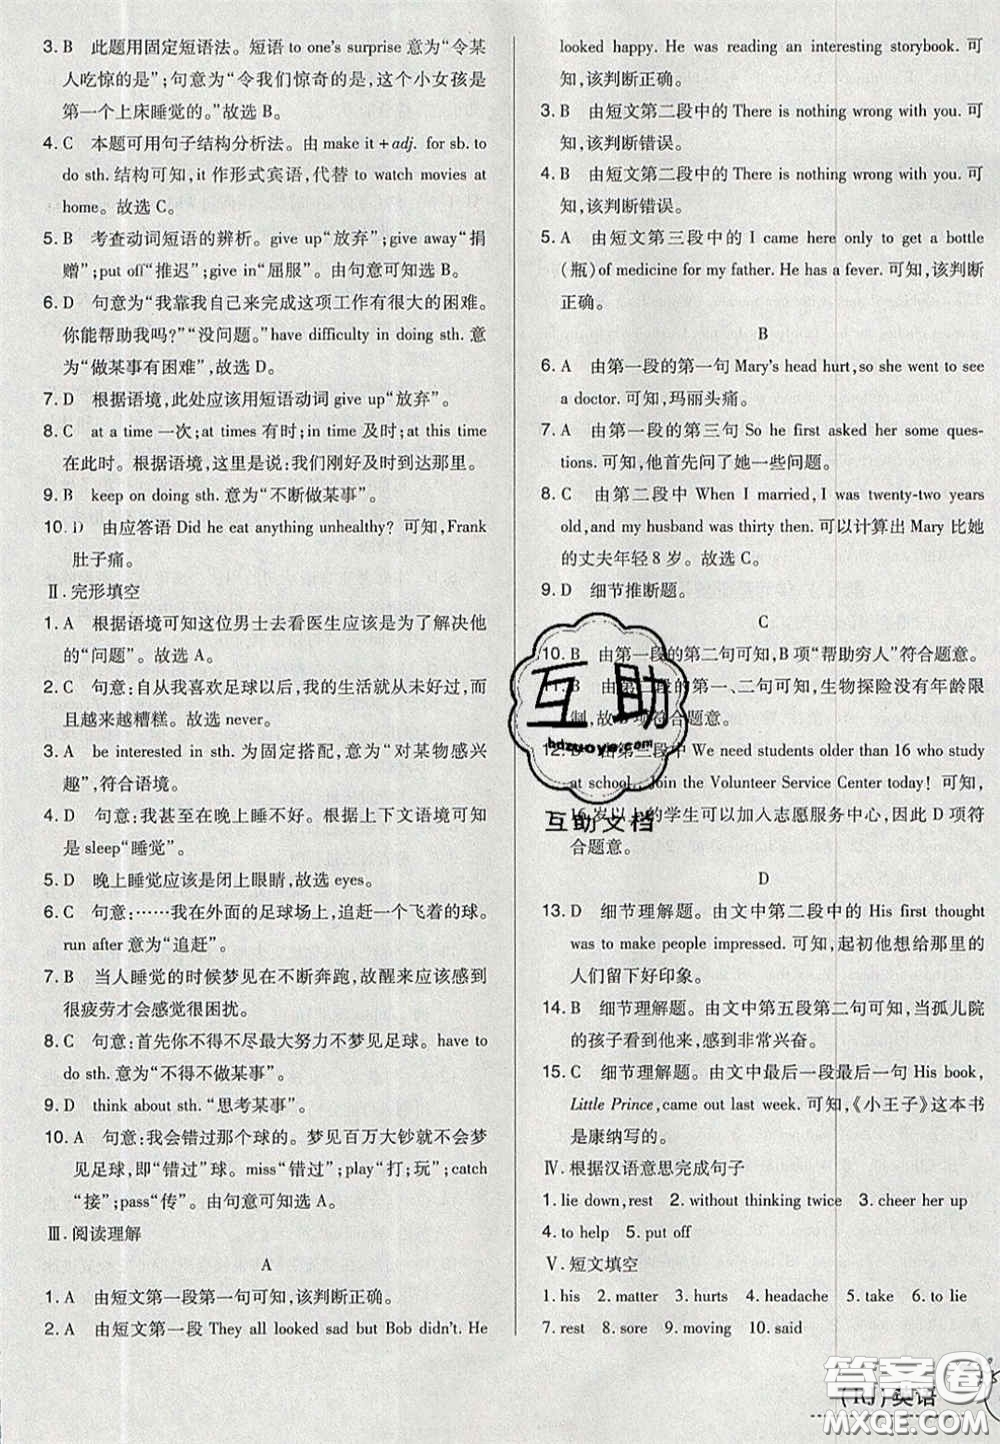 3. B 此题用固定短语法。短语 to one's surprise 意为“令某
人吃惊的是”;句意为“令我们惊奇的是,这个小女孩是
第一个上床睡觉的。”故选 B。
4. C 本题可用句子结构分析法。由 make it + adj. for sb. to
do sth. 结构可知, it 作形式宾语,代替 to watch movies at
home。故选 C。
5. B 考查动词短语的辨析。give up“放弃”;give away“捐
赠”;put off“推迟”;give in“屈服”。由句意可知选 B。
6. D 句意为“我靠我自己来完成这项工作有很大的困难。
你能帮助我吗?”“没问题。”have difficulty in doing sth. 意
为“做某事有困难”,故选 D。
7. D 根据语境,此处应该用短语动词 give up“放弃”。
8. C at a time 一次;at times 有时;in time 及时;at this time
在此时。根据语境,这里是说:我们刚好及时到达那里。
9. B keep on doing sth. 意为“不断做某事”。
10. D 由应答语 Did he eat anything unhealthy? 可知, Frank
肚子痛。
Ⅱ. 完形填空
1. A 根据语境可知这位男士去看医生应该是为了解决他
的“问题”。故选 A。
2. C 句意:自从我喜欢足球以后,我的生活就从未好过,而
且越来越糟糕。故选 never。
3. A be interested in sth. 为固定搭配,意为“对某物感兴
趣”,符合语境。
4. D 句意:我甚至在晚上睡不好。根据上下文语境可知
是 sleep“睡觉”。
5. D 晚上睡觉应该是闭上眼睛,故选 eyes。
6. C 句意:……我在外面的足球场上,追赶一个飞着的球。
run after 意为“追赶”。
7. B 当人睡觉的时候梦见在不断奔跑,故醒来应该感到
很疲劳才会感觉很困扰。
8. C 句意:首先你不得不尽最大努力不梦见足球。have to
do sth. 意为“不得不做某事”。
9. D think about sth. “思考某事”。
10. A 句意:我会错过那个球的。梦见百万大钞就不会梦
见足球,即“错过”球。miss“错过”;play“打;玩”;catch
“接”;pass“传”。由句意可知选 A。
Ⅲ. 阅读理解
A
1. A 由短文第一段第一句可知,该判断正确。
2. A 由短文第一段 They all looked sad but Bob didn't. He
looked happy. He was reading an interesting storybook. 可
知,该判断正确。
3. B 由短文第二段中的 There is nothing wrong with you. 可
知,该判断错误。
4. B 由短文第二段中的 There is nothing wrong with you. 可
知,该判断错误。
5. A 由短文第三段中的 I came here only to get a bottle
(瓶) of medicine for my father. He has a fever. 可知,该判断
正确。
B
6. A 由第一段的第一句 Mary's head hurt, so she went to see
a doctor. 可知,玛丽头痛。
7. A 由第一段的第三句 So he first asked her some ques-
tions. 可知,他首先问了她一些问题。
8. C 由第二段中 When I married, I was twenty-two years
old, and my husband was thirty then. 可以计算出 Mary 比她
的丈夫年轻 8 岁。故选 C。
9. D 细节推断题。
C
10. B 由第一段的第二句可知,B 项“帮助穷人”符合题意。
11. B 由第二段的第一、二句可知,生物探险没有年龄限
制,故 项符合题意。
12. D 由第三段中 We need students older than 16 who study
at school. Join the Volunteer Service Center today! 可知,
16 岁以上的学生可以加入志愿服务中心,因此 D 项符
合题意。
D
13. D 细节理解题。由文中第二段中的 His first thought
was to make people impressed. 可知,起初他想给那里的
人们留下好印象。
14. B 细节理解题。由文中第五段第二句可知,当孤儿院
的孩子们看到他时,感到非常兴奋。
15. C 细节理解题。由文中最后一段最后一句 His book,
Little Prince, came out last week. 可知,《小王子》这本书
是康纳写的。
Ⅳ. 根据汉语意思完成句子
1. lie down, rest 2. without thinking twice 3. cheer her up
4. to help 5. put off
Ⅴ. 短文填空
1. his 2. matter 3. hurts 4. headache 5. took 6. to lie
7. rest 8. sore 9. moving 10. said
互助
hdzuoye.com
互助文档
(RJ)英语
答案圈
MXQE.COM